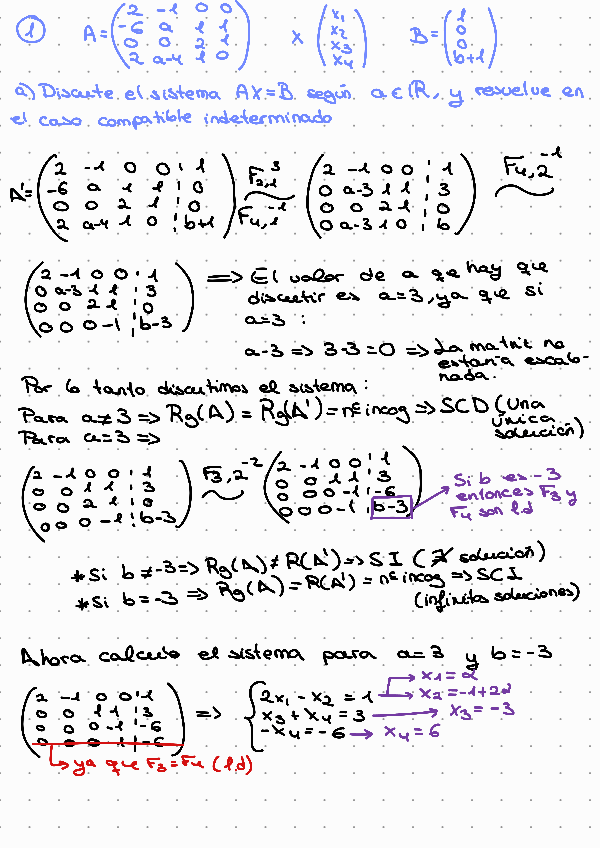 1 A= (2 -1 0 0 / -6 a 1 1 / 0 0 2 1 / 2 a-4 1 0) X (x1 / x2 / x3 / x4) B= (1 / 0 / 0 / b+1)
a) Discute el sistema AX=B según a∈ℝ, y resuelve en
el caso compatible indeterminado
A'= (2 -1 0 0 ¦ 1 / -6 a 1 1 ¦ 0 / 0 0 2 1 ¦ 0 / 2 a-4 1 0 ¦ b+1) F2,1^3 F4,1^-1 (2 -1 0 0 ¦ 1 / 0 a-3 1 1 ¦ 3 / 0 0 2 1 ¦ 0 / 0 a-3 1 0 ¦ b) F4,2^-1
(2 -1 0 0 ¦ 1 / 0 a-3 1 1 ¦ 3 / 0 0 2 1 ¦ 0 / 0 0 0 -1 ¦ b-3) => El valor de a que hay que
discutir es a=3, ya que si
a=3 :
a-3 => 3-3=0 => La matriz no
estaría escalo-
nada.
Por lo tanto discutimos el sistema:
Para a≠3 => Rg(A) = Rg(A') = nº incog => SCD (Una
única
solución)
Para a=3 =>
(2 -1 0 0 ¦ 1 / 0 0 1 1 ¦ 3 / 0 0 2 1 ¦ 0 / 0 0 0 -1 ¦ b-3) F3,2^-2 (2 -1 0 0 ¦ 1 / 0 0 1 1 ¦ 3 / 0 0 0 -1 ¦ -6 / 0 0 0 -1 ¦ b-3)
Si b es -3
entonces F3 y
F4 son l.d
*Si b ≠ -3 => Rg(A) ≠ R(A') => SI (∄ solución)
*Si b = -3 => Rg(A) = R(A') = nº incog => SCI
(infinitas soluciones)
Ahora calculo el sistema para a=3 y b=-3
(2 -1 0 0 ¦ 1 / 0 0 1 1 ¦ 3 / 0 0 0 -1 ¦ -6 / 0 0 0 -1 ¦ -6) => {
2x1 - x2 = 1 → x1 = α
→ x2 = -1+2α
x3 + x4 = 3 → x3 = -3
-x4 = -6 → x4 = 6
ya que F3 = F4 (l.d)